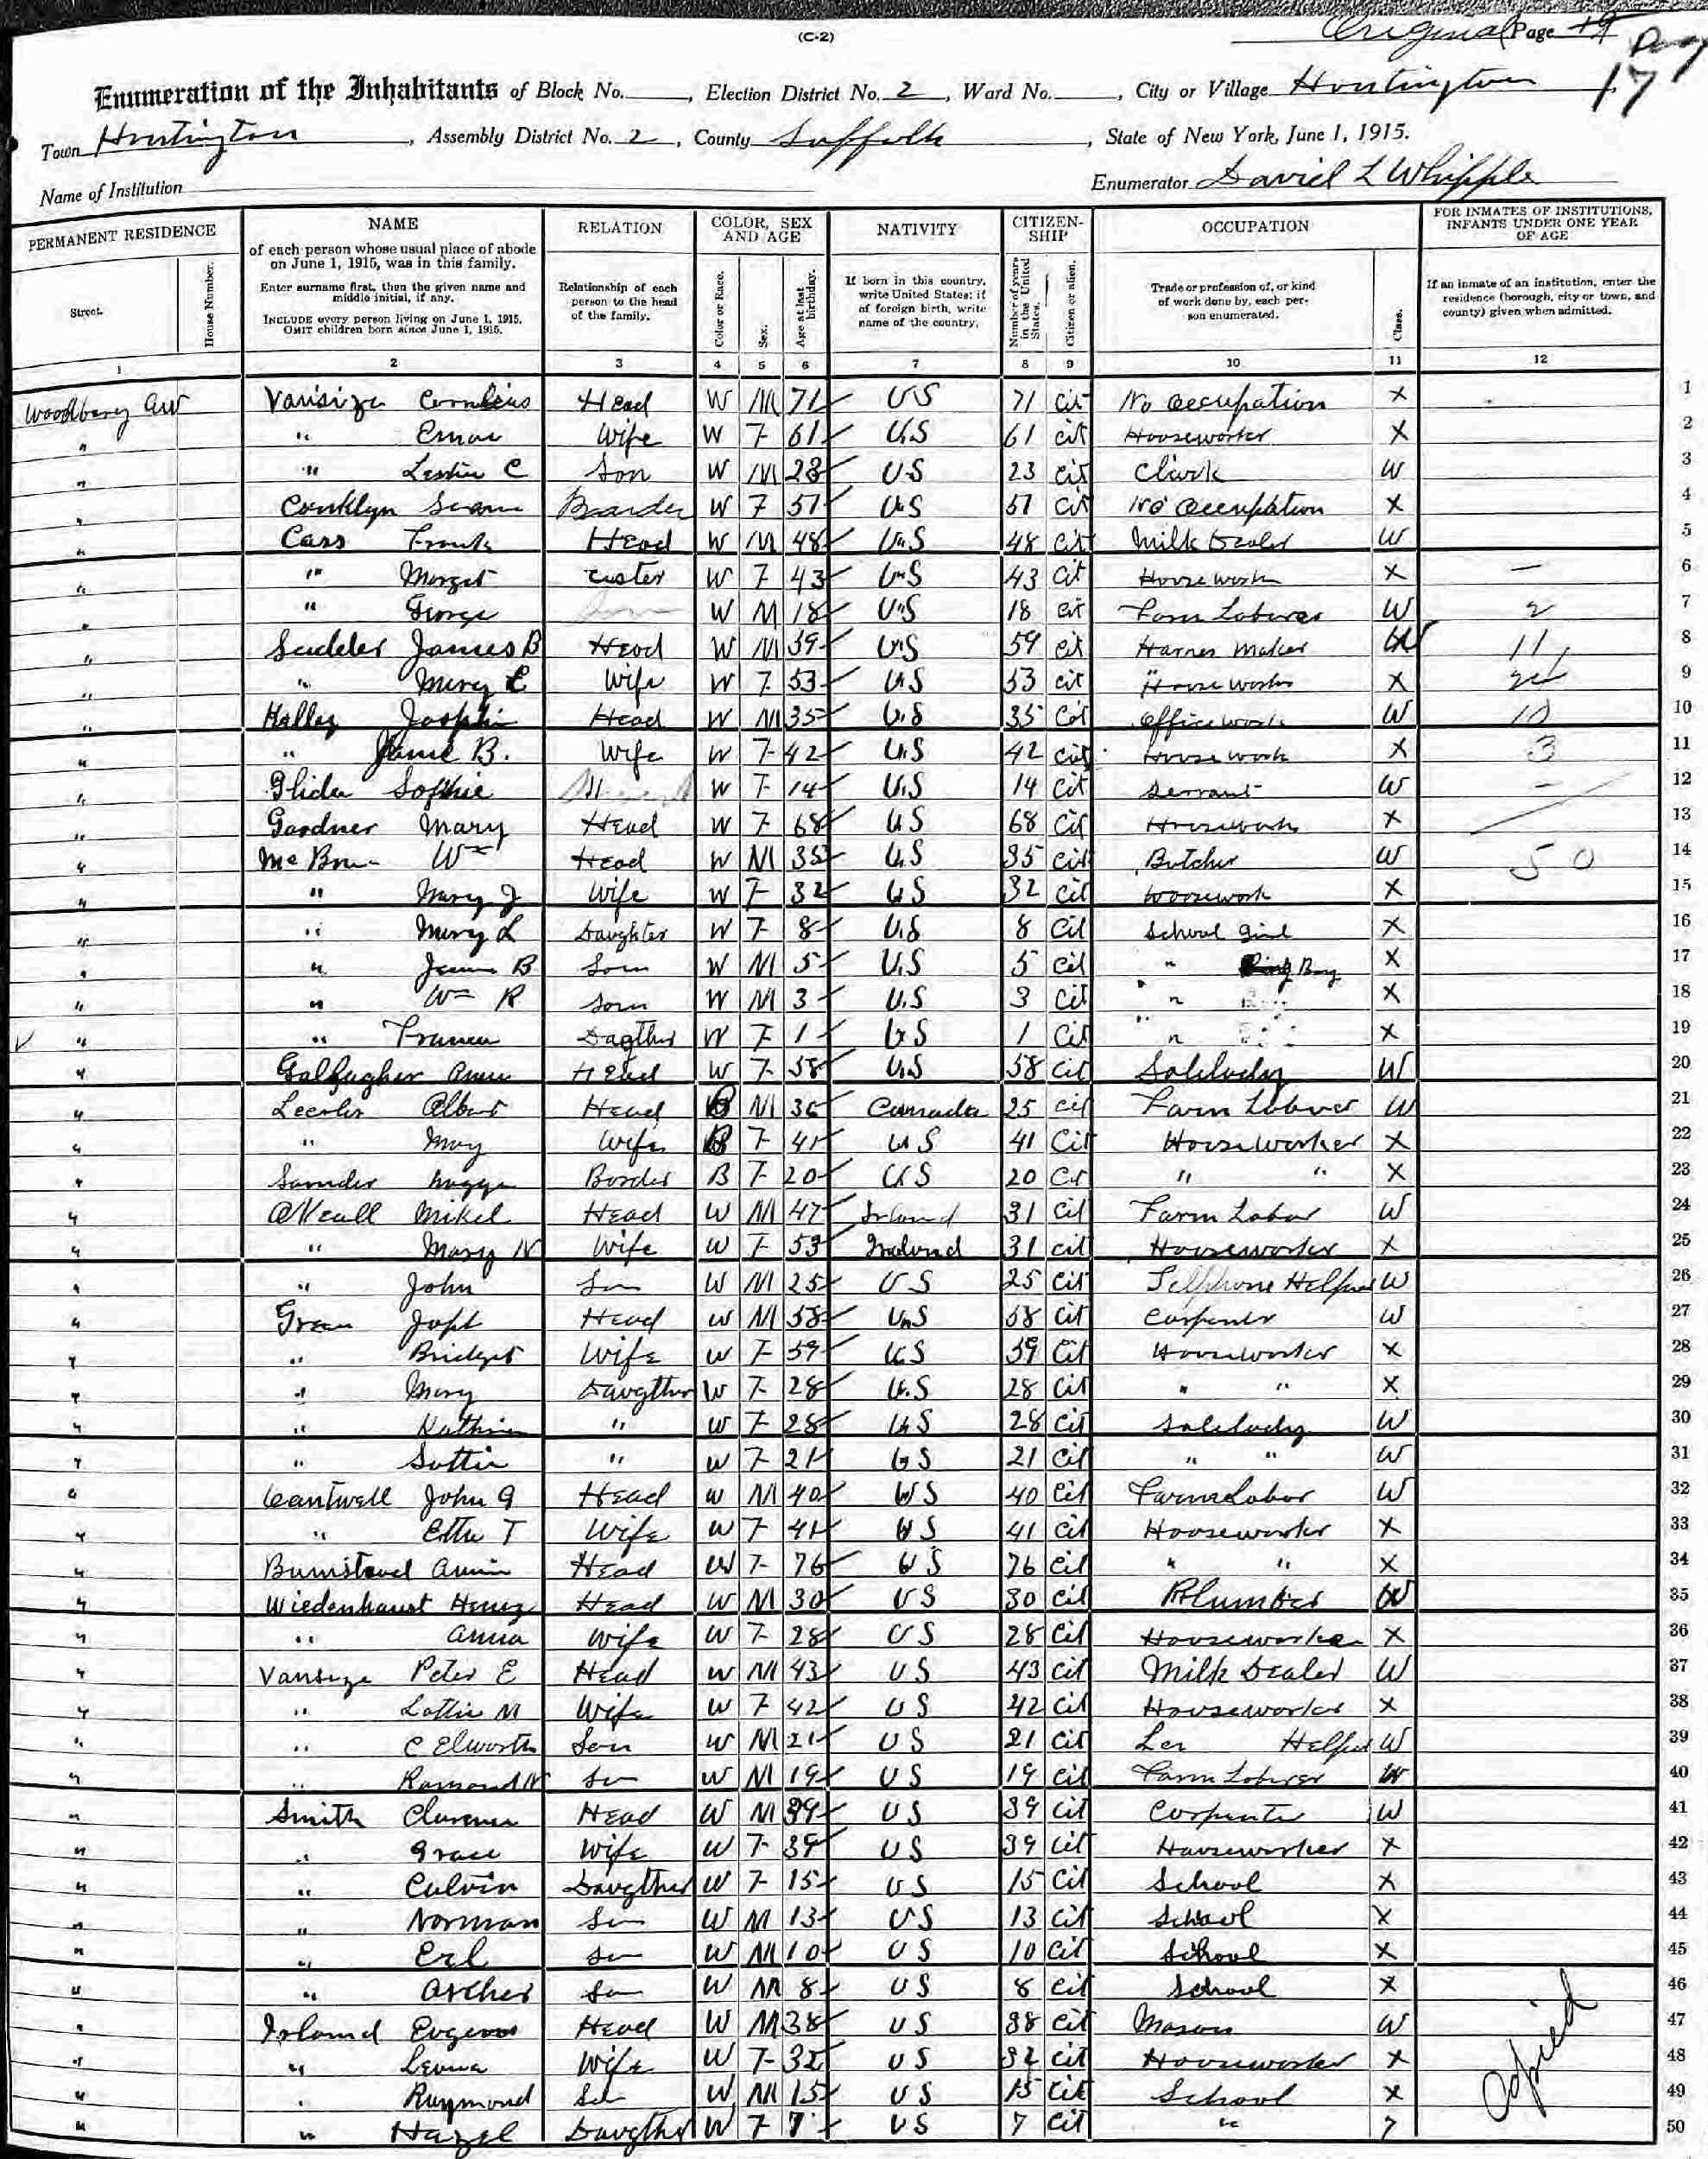 (C-2)
Original Page 19
17
Enumeration of the Inhabitants of Block No. , Election District No. 2 , Ward No. , City or Village Huntington
Town Huntington , Assembly District No. 2 , County Suffolk , State of New York, June 1, 1915.
Name of Institution Enumerator David L Whipple
PERMANENT RESIDENCE NAME RELATION COLOR, SEX AND AGE NATIVITY CITIZEN-SHIP OCCUPATION FOR INMATES OF INSTITUTIONS, INFANTS UNDER ONE YEAR OF AGE
Street. House Number. of each person whose usual place of abode on June 1, 1915, was in this family. Enter surname first, then the given name and middle initial, if any. INCLUDE every person living on June 1, 1915. OMIT children born since June 1, 1915. Relationship of each person to the head of the family. Color or Race. Sex. Age at last birthday. If born in this country, write United States; if of foreign birth, write name of the country. Number of years in the United States. Citizen or alien. Trade or profession of, or kind of work done by, each person enumerated. Class. If an inmate of an institution, enter the residence (borough, city or town, and county) given when admitted.
1 2 3 4 5 6 7 8 9 10 11 12
Woodbury av Vansize Cornlius Head W M 71 US 71 cit No occupation X 1
" " Emma Wife W F 61 U.S 61 cit Houseworker X 2
" " C Son W M 28 US 23 cit Clark W 3
" Conklyn Boarder W F 51 U.S 51 cit No occupation X 4
" Cass Frank Head W M 48 U.S 48 cit Milk Dealer W 5
" " Marget W F 43 U.S 43 cit Housework X 6
" " George W M 18 U.S 18 cit Farm Laborer W 2 7
" Scudder James B Head W M 59 U.S 59 cit Harnes Maker W 11 8
" " Mary E Wife W F 53 U.S 53 cit Housework X 9
" Head W M 35 U.S 35 cit Office work W 10 10
" " Jane B. Wife W F 42 U.S 42 cit Housework X 3 11
" Glider Sophie W F 14 U.S 14 cit Servant W 12
" Gardner Mary Head W F 68 US 68 cit Housework X 13
" Wm Head W M 35 U.S 35 cit Butcher W 50 14
" " Mary J Wife W F 32 US 32 cit Housework X 15
" " Mary L Daughter W F 8 U.S 8 cit School Girl X 16
" " James B Son W M 5 U.S 5 cit " Boy X 17
" " Wm R Son W M 3 U.S 3 cit " X 18
" " Frances Dagther W F 1 US 1 cit " X 19
" Gallagher Anna Head W F 58 US 58 cit Saleslady W 20
" Albert Head B M 36 Canada 25 cit Farm Laborer W 21
" " May Wife B F 41 US 41 cit Houseworker X 22
" Border B F 20 US 20 cit " " X 23
" O'Neall Mikel Head W M 47 Irland 31 cit Farm Labor W 24
" " Mary N Wife W F 53 Ireland 31 cit Houseworker X 25
" " John Son W M 25 US 25 cit Telphone Helper W 26
" Green Joph Head W M 58 U.S 58 cit Carpenter W 27
" " Bridget Wife W F 59 US 59 cit Houseworker X 28
" " Mary Davgther W F 28 U.S 28 cit " " X 29
" " " W F 28 US 28 cit Saleslady W 30
" " " W F 21 US 21 cit " " W 31
" Cantwell John G Head W M 40 US 40 cit Farm Labor W 32
" " Etta T Wife W F 41 US 41 cit Houseworker X 33
" Bumstead Annie Head W F 76 US 76 cit " " X 34
" Wiedenhaust Henry Head W M 30 US 30 cit Plumber W 35
" " Anna Wife W F 28 US 28 cit Houseworker X 36
" Vansize Peter E Head W M 43 US 43 cit Milk Dealer W 37
" " Lottie M Wife W F 42 US 42 cit Houseworker X 38
" " C Elworth Son W M 21 US 21 cit Helper W 39
" " Ramond N Son W M 19 US 19 cit Farm Laborer W 40
" Smith Clarence Head W M 39 US 39 cit Carpenter W 41
" " Grace Wife W F 39 US 39 cit Houseworker X 42
" " Calvin Davgther W F 15 US 15 cit School X 43
" " Norman Son W M 13 US 13 cit School X 44
" " Erl Son W M 10 US 10 cit School X 45
" " Archer Son W M 8 US 8 cit School X 46
" Island Eugene Head W M 38 US 38 cit Mason W 47
" " Wife W F 32 US 32 cit Houseworker X 48
" " Raymond Son W M 15 US 15 cit School X 49
" " Hazel Davgther W F 7 US 7 cit " 50
Copied